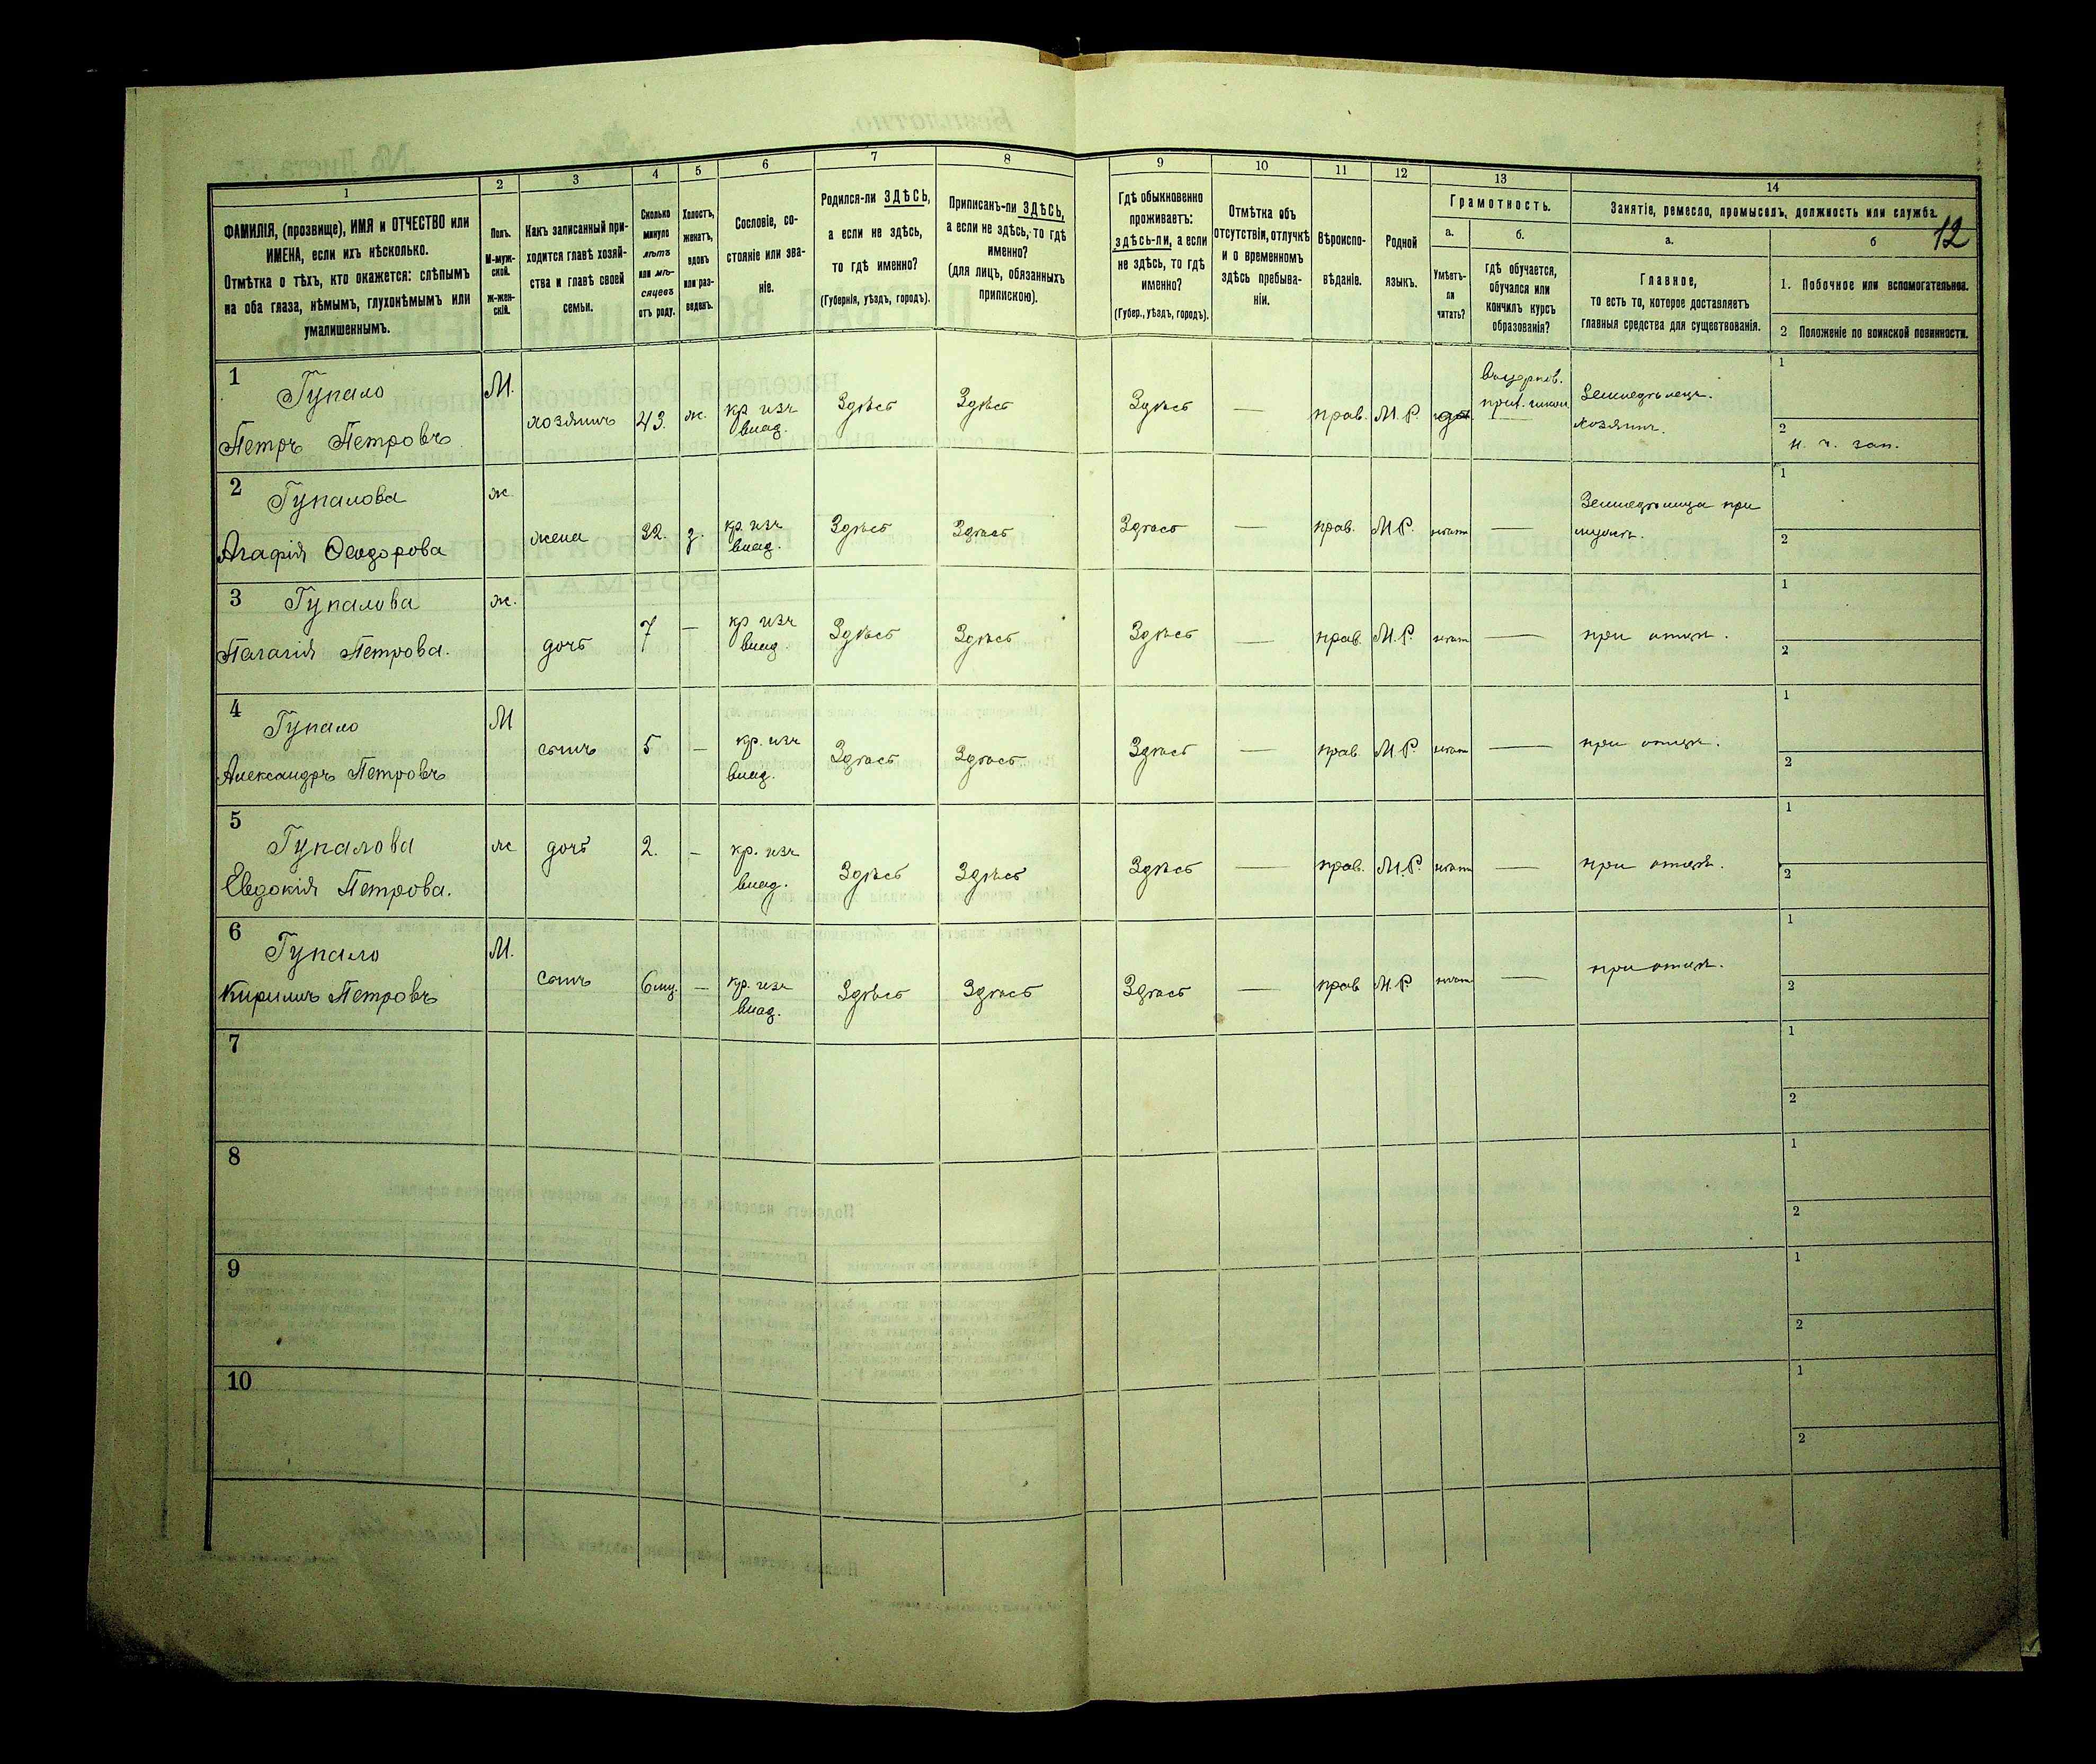 1
2
3
4
5
6
7
8
9
10
11
12
13
14
ФАМИЛІЯ, (прозвище), ИМЯ и ОТЧЕСТВО или
ИМЕНА, если ихъ нѣсколько.
Отмѣтка о тѣхъ, кто окажется: слѣпымъ
на оба глаза, нѣмымъ, глухонѣмымъ или
умалишеннымъ.
Полъ.
М-муж-
ской.
Ж-жен-
скій.
Какъ записанный при-
ходится главѣ хозяй-
ства и главѣ своей
семьи.
Сколько
минуло
лѣтъ
или мѣ-
сяцевъ
отъ роду.
Холостъ,
женатъ,
вдовъ
или раз-
веденъ.
Сословіе, со-
стояніе или зва-
ніе.
Родился-ли ЗДѢСЬ,
а если не здѣсь,
то гдѣ именно?
(Губернія, уѣздъ, городъ).
Приписанъ-ли ЗДѢСЬ,
а если не здѣсь, то гдѣ
именно?
(для лицъ, обязанныхъ
припискою).
Гдѣ обыкновенно
проживаетъ:
здѣсь-ли, а если
не здѣсь, то гдѣ
именно?
(Губер., уѣздъ, городъ).
Отмѣтка объ
отсутствіи, отлучкѣ
и о временномъ
здѣсь пребыва-
ніи.
Вѣроиспо-
вѣданіе.
Родной
языкъ.
Грамотность.
а.
Умѣетъ-
ли
читать?
б.
Гдѣ обучается,
обучался или
кончилъ курсъ
образованія?
Занятіе, ремесло, промыселъ, должность или служба.
12
а.
Главное,
то есть то, которое доставляетъ
главныя средства для существованія.
б
1. Побочное или вспомогательное.
2 Положеніе по воинской повинности.
1
Гупало
Петръ Петровъ
М.
хозяинъ
43.
ж.
кр. изъ
влад.
Здѣсь
Здѣсь
Здѣсь
—
прав.
М.Р.
да
Земледѣлецъ.
хозяинъ.
1
2
н. ч. зап.
2
Гупалова
Агафія Ѳеодорова
ж.
жена
32.
з.
кр. изъ
влад.
Здѣсь
Здѣсь
Здѣсь
—
прав.
М.Р.
нѣтъ
—
Земледѣлица при
мужѣ.
1
2
3
Гупалова
Палагія Петрова.
ж.
дочь
7
—
кр. изъ
влад.
Здѣсь
Здѣсь
Здѣсь
—
прав.
М.Р.
нѣтъ
—
при отцѣ.
1
2
4
Гупало
Александръ Петровъ
М
сынъ
5
—
кр. изъ
влад.
Здѣсь
Здѣсь
Здѣсь
—
прав.
М.Р.
нѣтъ
—
при отцѣ.
1
2
5
Гупалова
Евдокія Петрова.
ж
дочь
2.
—
кр. изъ
влад.
Здѣсь
Здѣсь
Здѣсь
—
прав.
М.Р.
нѣтъ
—
при отцѣ.
1
2
6
Гупало
Кирилъ Петровъ
М.
сынъ
6 мц.
—
кр. изъ
влад.
Здѣсь
Здѣсь
Здѣсь
—
прав
М.Р.
нѣтъ
—
при отцѣ.
1
2
7
1
2
8
1
2
9
1
2
10
1
2